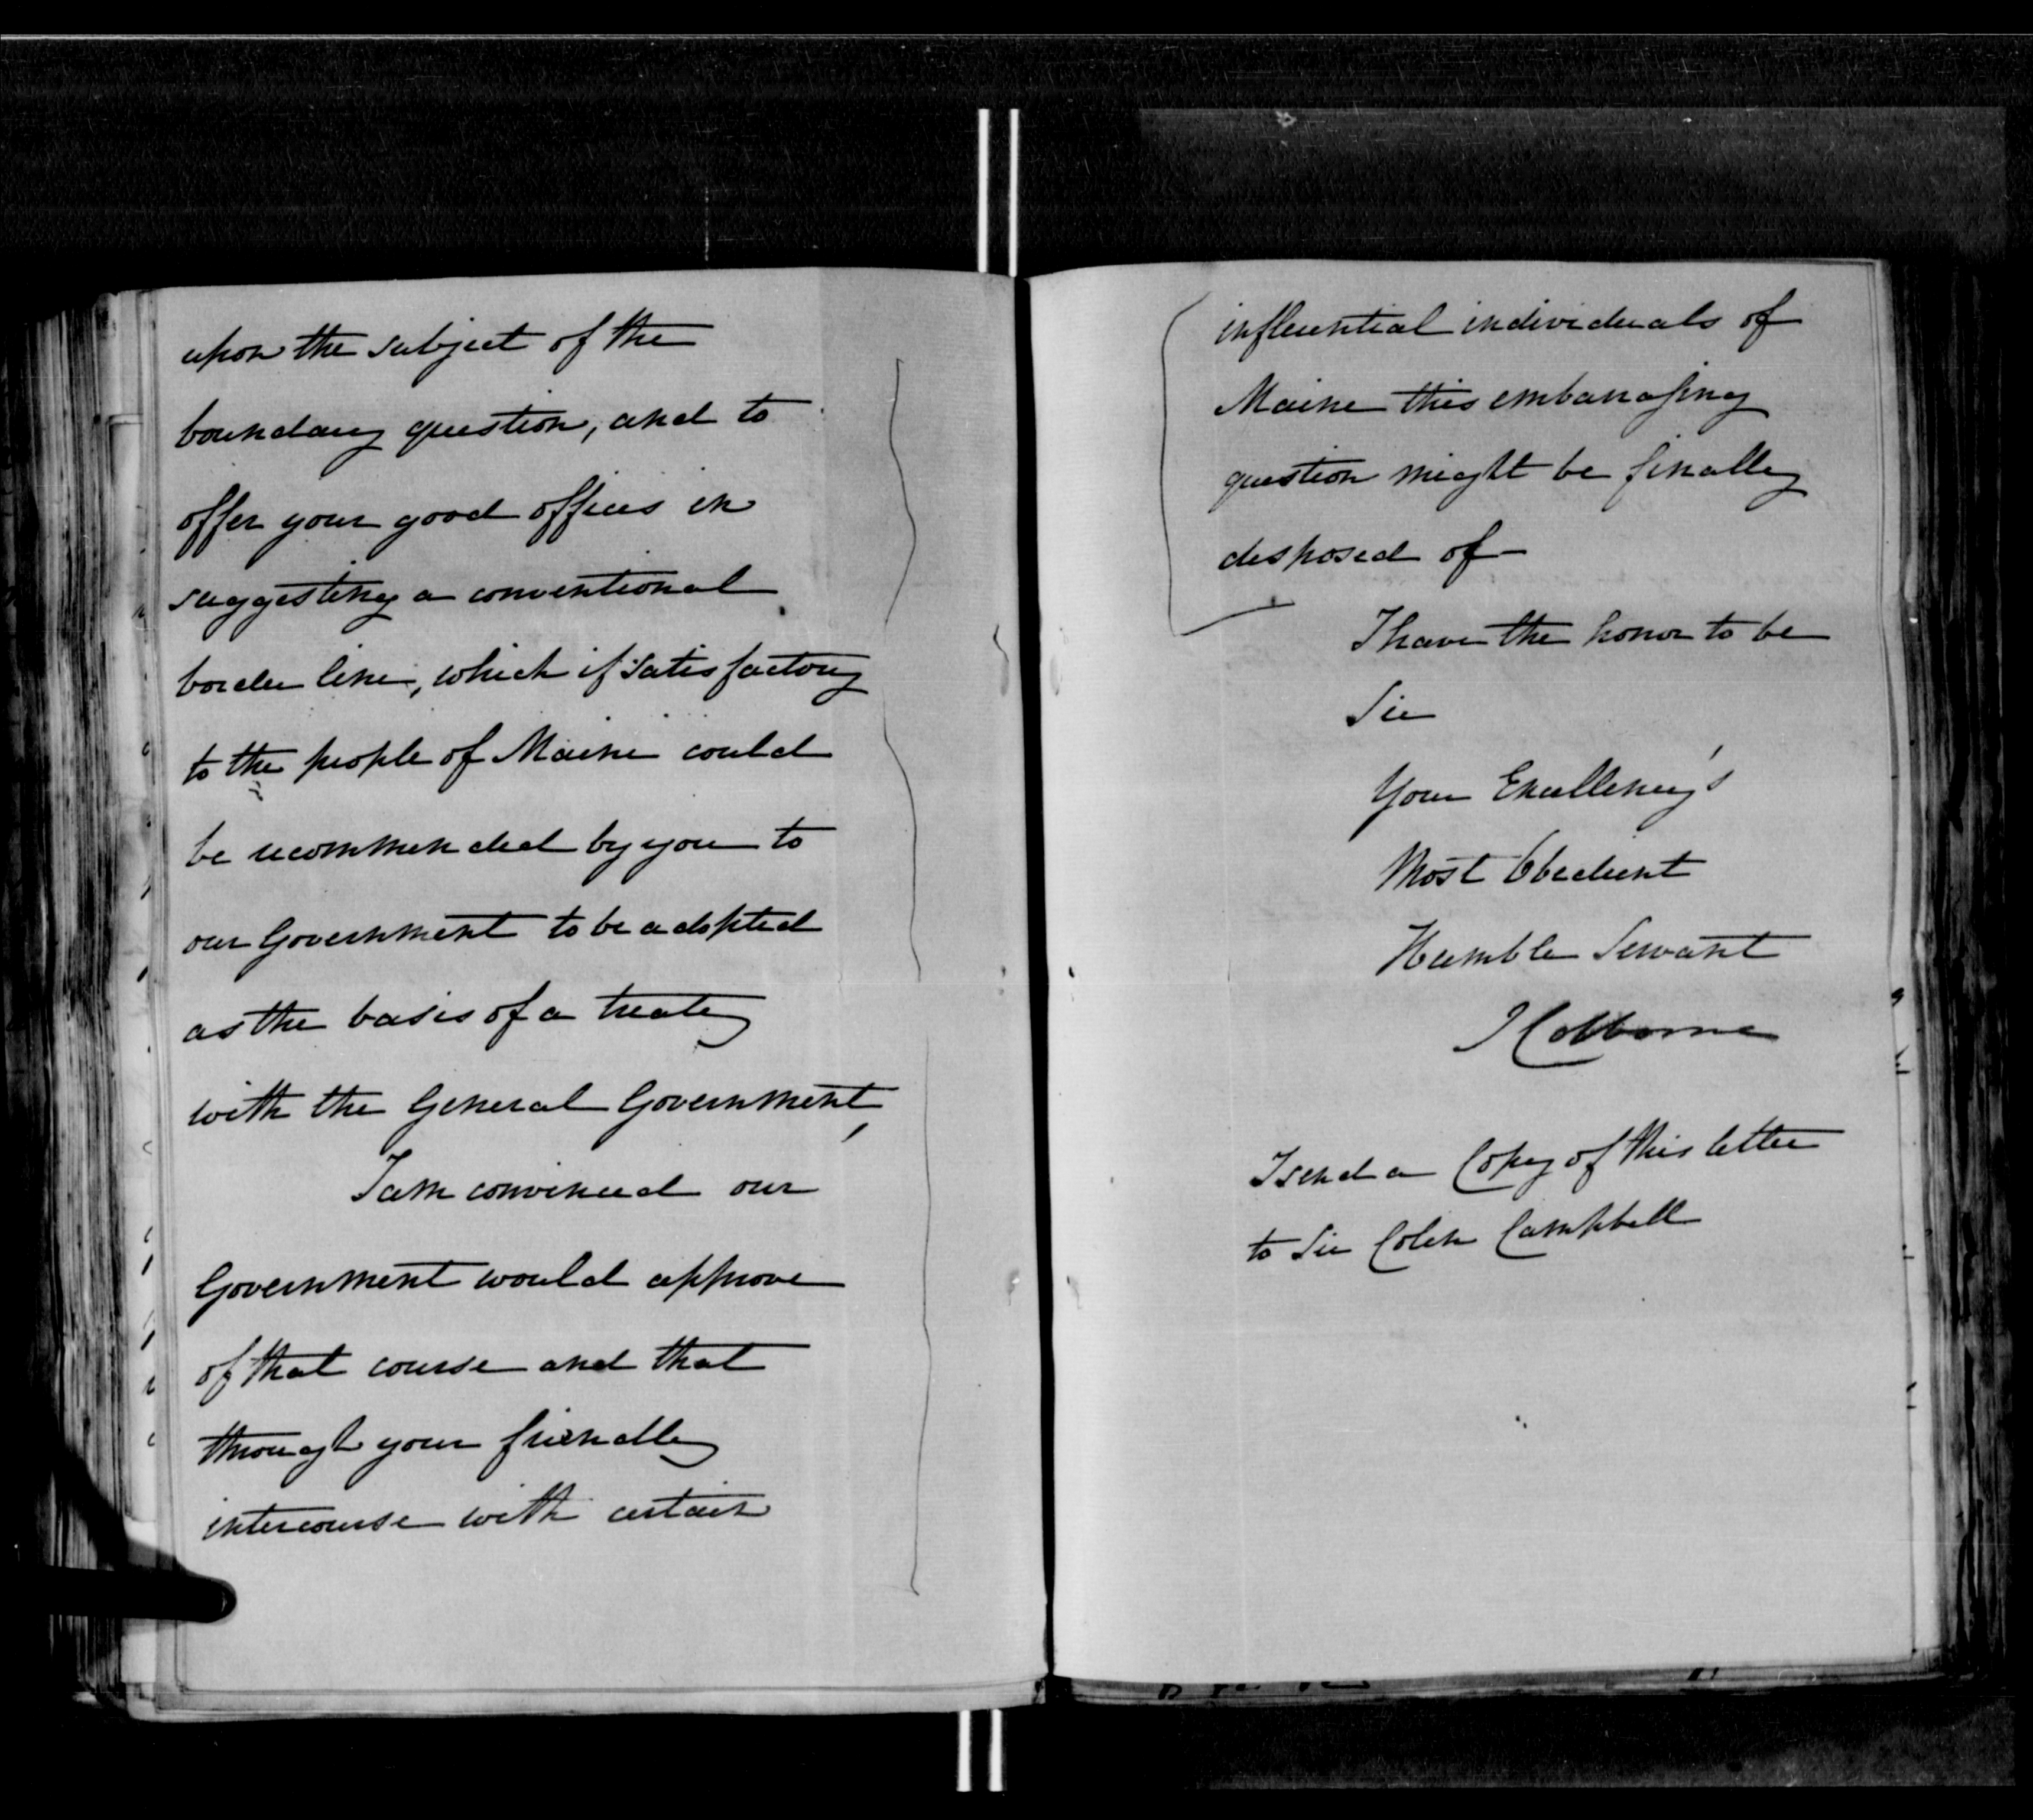 upon the subject of the
boundary question, and to
offer your good offices in
suggesting a conventional
border line, which if satisfactory
to the people of Maine could
be recommended by you to
our Government to be adopted
as the basis of a treaty
with the General Government,
I am convinced our
Government would approve
of that course and that
through your friendly
intercourse with certain
influential individuals of
Maine this embarrassing
question might be finally
disposed of—
I have the honor to be
Sir
Your Excellency's
Most Obedient
Humble Servant
J Colborne
I send a Copy of this letter
to Sir Colin Campbell